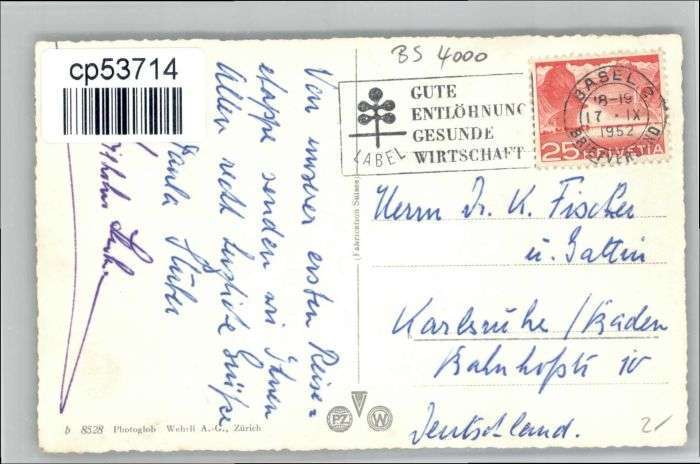 cp53714
BS 4000
Von unserer ersten Reise=
etappe senden wir Ihnen
Allen recht herzliche Grüße
Paula Stüber
GUTE
ENTLÖHNUNG
GESUNDE
WIRTSCHAFT
LABEL
BASEL 2
18-19
17. IX
1952
BRIEFVERSAND
25 HELVETIA
Herrn Dr. K. Fischer
u. Gattin
Karlsruhe / Baden
Bahnhofstr 10
Deutschland.
(Fabrication Suisse)
b 8528 Photoglob Wehrli A.-G., Zürich
PZ W
2/